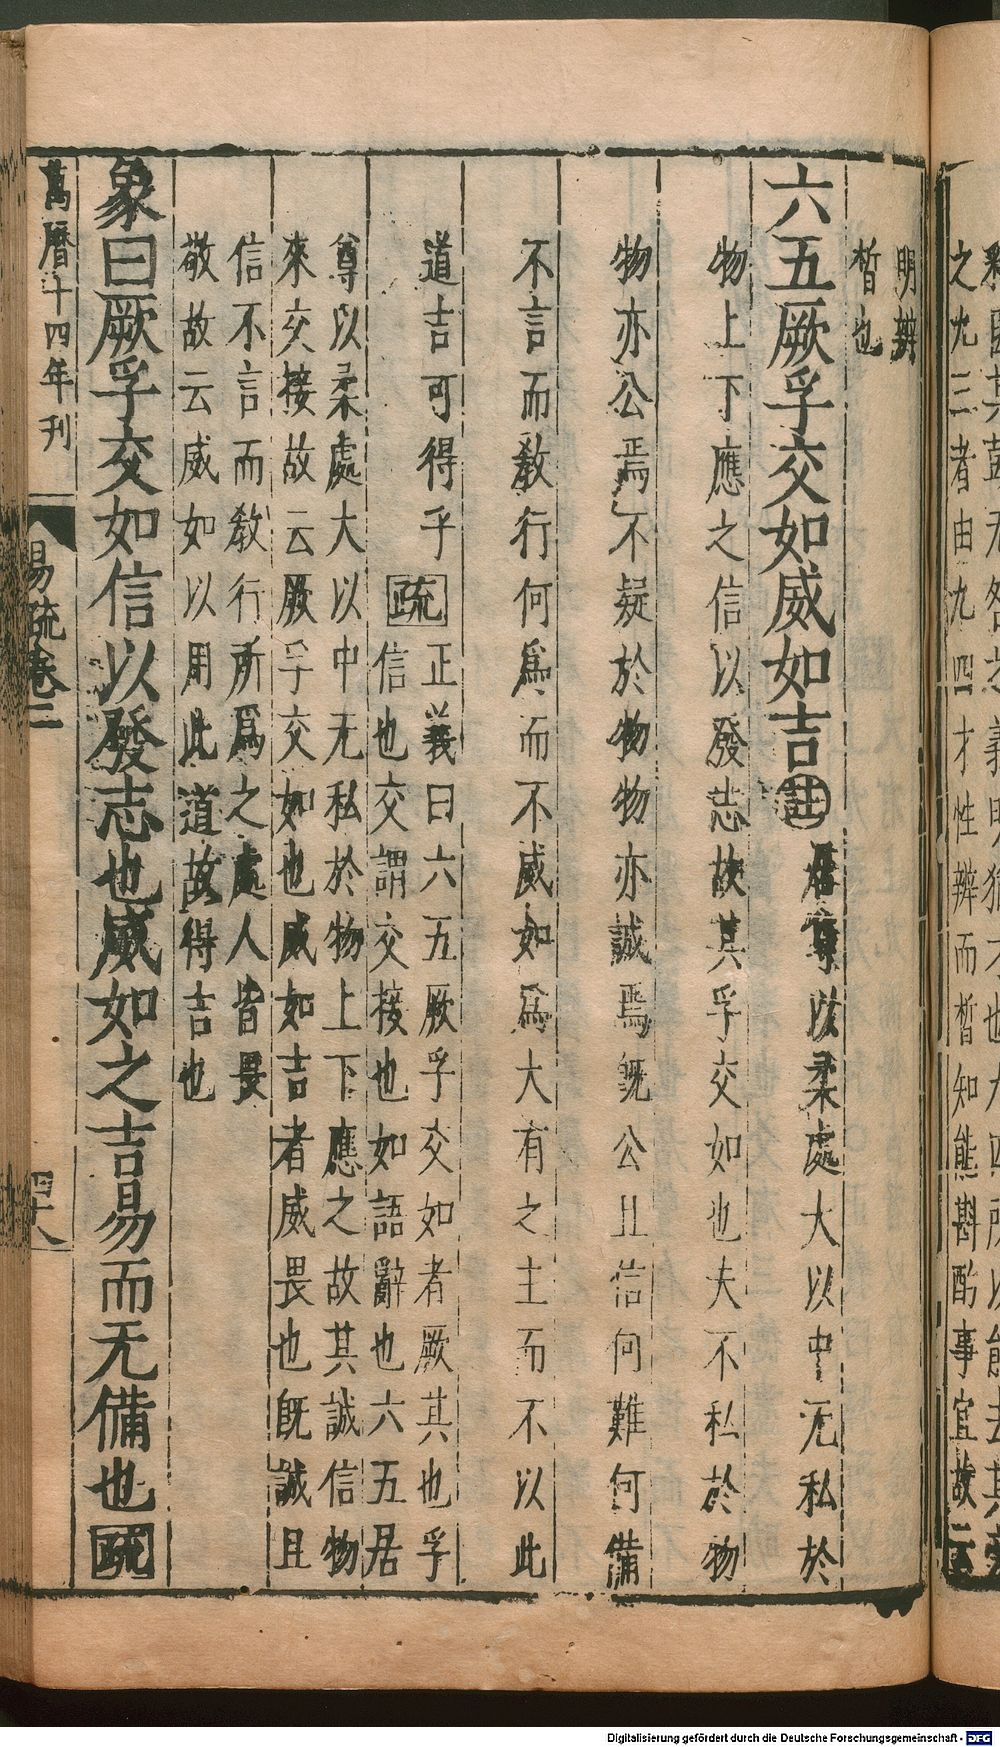 之九三者由九四才性辨而晳知能斟酌事宜故云
明辨
晳也
六五厥孚交如威如吉註居尊以柔處大以中无私於
物上下應之信以發志故其孚交如也夫不私於物
物亦公焉不疑於物物亦誠焉既公且信何難何備
不言而教行何爲而不威如爲大有之主而不以此
道吉可得乎疏正義曰六五厥孚交如者厥其也孚
信也交謂交接也如語辭也六五居
尊以柔處大以中无私於物上下應之故其誠信物
來交接故云厥孚交如也威如吉者威畏也既誠且
信不言而教行所爲之處人皆畏
敬故云威如以用此道故得吉也
象曰厥孚交如信以發志也威如之吉易而无備也疏
萬曆十四年刋
易疏卷二
四十八
Digitalisierung gefördert durch die Deutsche Forschungsgemeinschaft - DFG